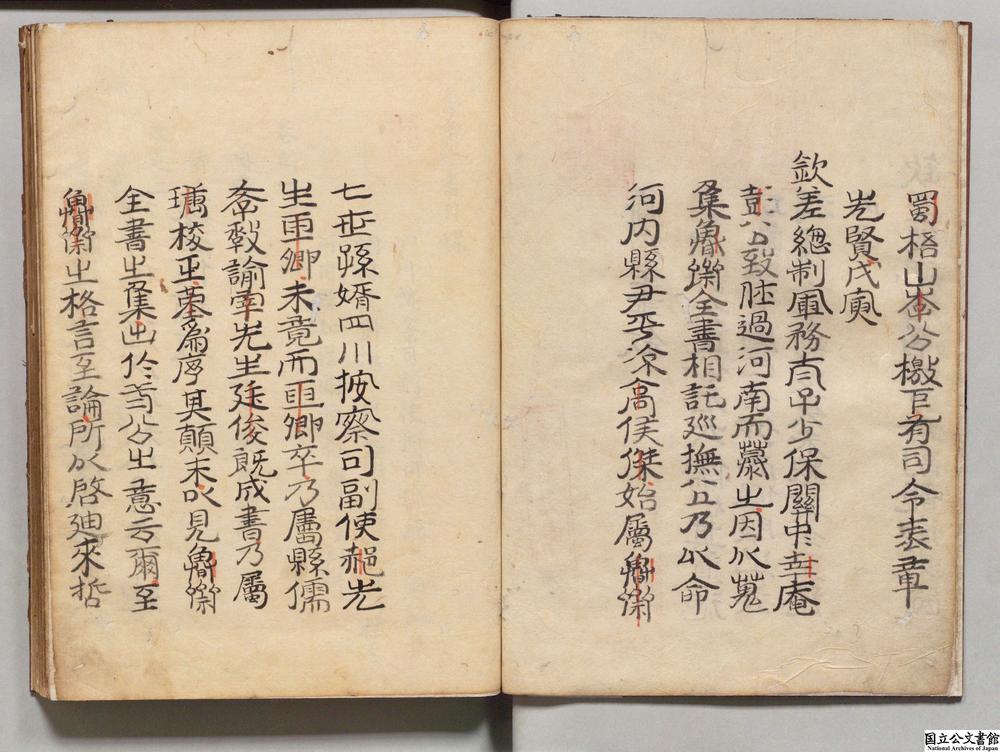 蜀梧山李公檄巨有司令表章
先賢戊寅
欽差總制軍務太子少保關中幸庵
彭公致仕過河南而之因以蒐
集魯齋全書相託巡撫公乃以命
河內縣尹平凉高侯傑始屬魯齋
七世孫婿四川按察司副使郝先
生亞卿未竟而亞卿卒乃屬縣儒
斈教諭宰先生廷俊既成書乃屬
瑭校正爲序其顛末以見魯齋
全書之集出於公之意云爾至
魯齋之格言至論所以啓廸來哲
国立公文書館
National Archives of Japan